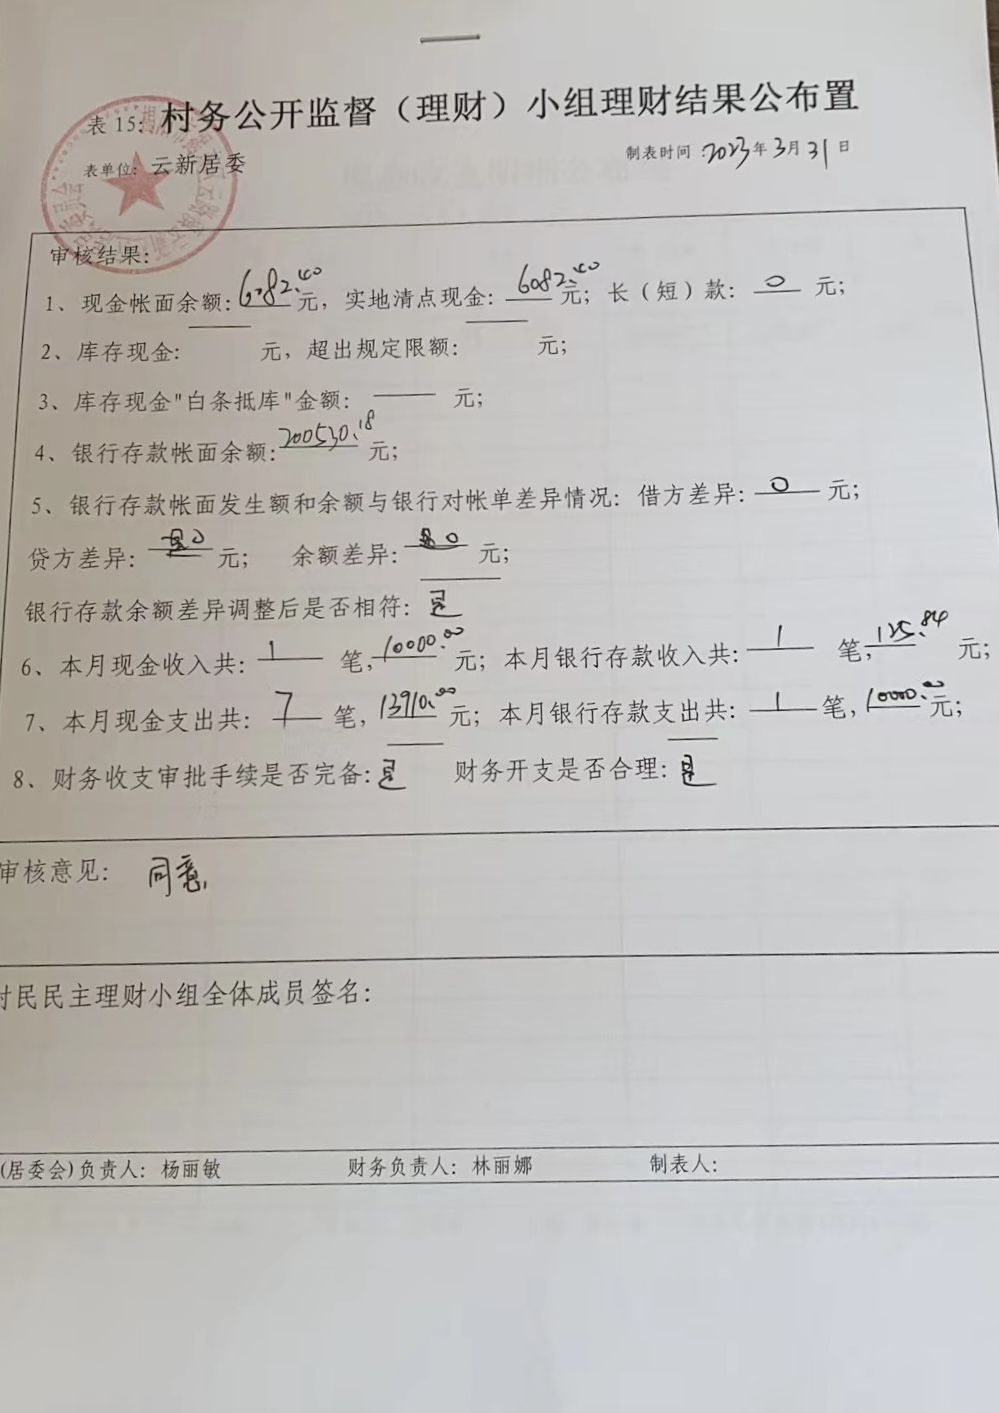 表 15: 村务公开监督（理财）小组理财结果公布置
表单位: 云新居委 制表时间:2023年3月31日
审核结果:
1、现金帐面余额: 6082.40元, 实地清点现金: 6082.40元; 长（短）款: 0 元;
2、库存现金: 元, 超出规定限额: 元;
3、库存现金"白条抵库"金额: 元;
4、银行存款帐面余额: 200530.18元;
5、银行存款帐面发生额和余额与银行对帐单差异情况: 借方差异: 0 元;
贷方差异: 0 元; 余额差异: 0 元;
银行存款余额差异调整后是否相符: 是
6、本月现金收入共: 1 笔, 10000.00元; 本月银行存款收入共: 1 笔, 125.84元;
7、本月现金支出共: 7 笔, 13910.00元; 本月银行存款支出共: 1 笔, 10000.00元;
8、财务收支审批手续是否完备: 是 财务开支是否合理: 是
审核意见: 同意
村民民主理财小组全体成员签名:
(居委会)负责人: 杨丽敏 财务负责人: 林丽娜 制表人: